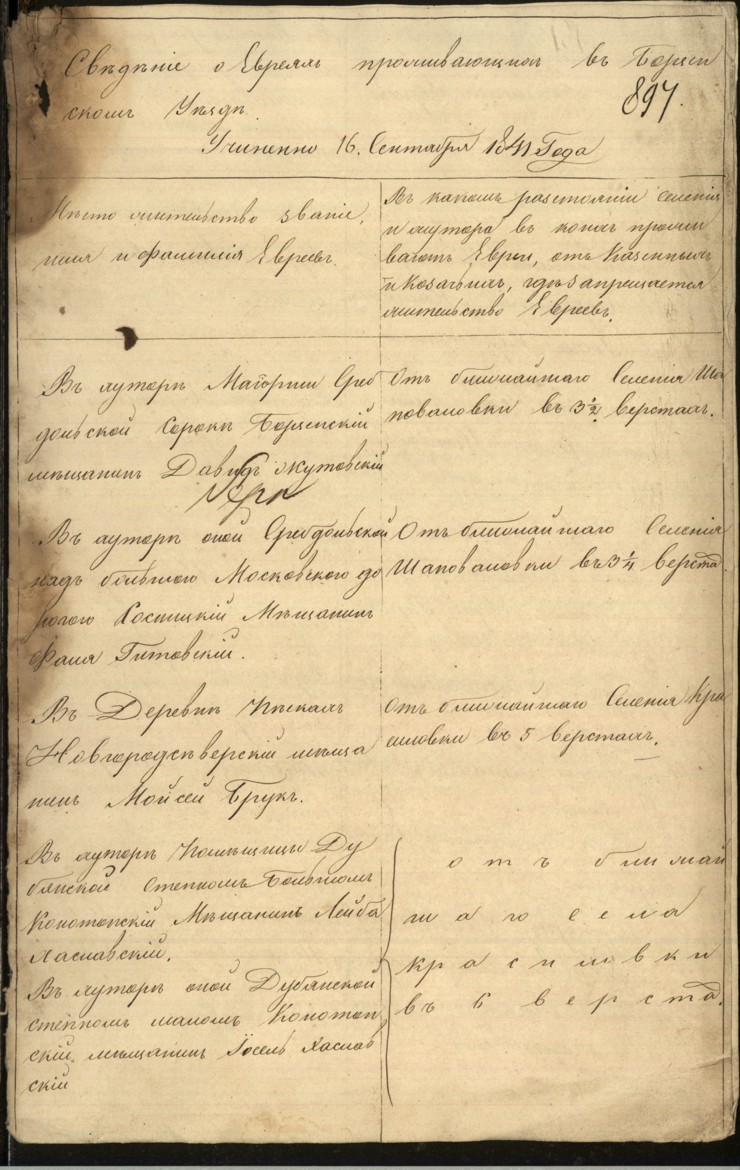 Свѣдѣніе о Евреяхъ проживающихъ въ Борзен
скомъ Уѣздѣ.
897.
Учиненно 16. Сентября 1841 Года
Мѣсто жительство званіе,
имя и фамилія Евреевъ.
Въ какомъ разстояніи селенія
и хутора в коихъ прожи
ваютъ Евреи, отъ Казенныхъ
и Козачьихъ, гдѣ запрещается
жительство Евреевъ.
Въ хуторѣ Маіорши Среб
дольской Сорокѣ Борзенскій
мѣщанинъ Давидъ
Отъ ближайшаго Селенія Ша
поваловки въ 3½ верстахъ.
Въ хуторѣ оной Сребдольской
надъ большою Московскою до
рогою Мѣщанинъ
Гитовскій.
Отъ ближайшаго Селенія
Шаповаловки въ 3¼ верста
Въ Деревнѣ Пѣскахъ
Новгородсѣверскій мѣща
нинъ Мойсей Брукъ.
Отъ ближайшаго Селенія Кра
силовки въ 5 верстахъ.
Въ хуторѣ Помѣщицы Ду
бянской степномъ Большомъ
Конотопскій Мѣщанинъ Лейба
Хаславскій.
Въ хуторѣ оной Дубянской
степномъ маломъ Коното
скій мѣщанинъ Іосель Хаслав
скій
отъ ближай
шаго села
Красиловки
въ 6 верста.